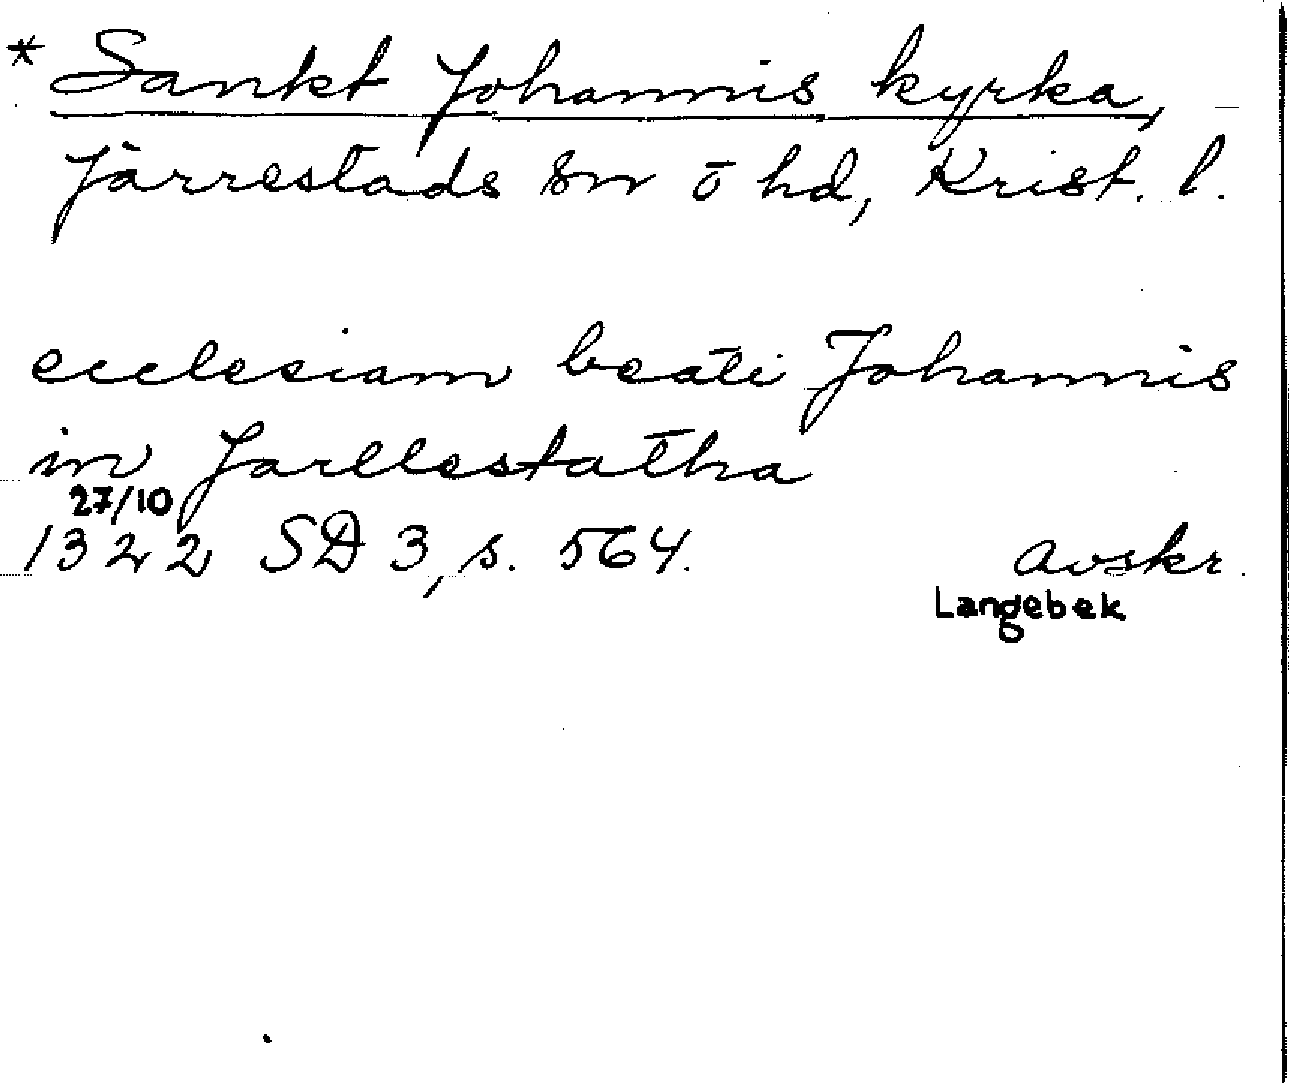 * Sankt Johannis kyrka,
Järrestads sn o hd, Krist. l.
ecclesiam beati Johannis
in Jarllestatha
27/10
1322 SD 3, s. 564. Avskr.
Langebek